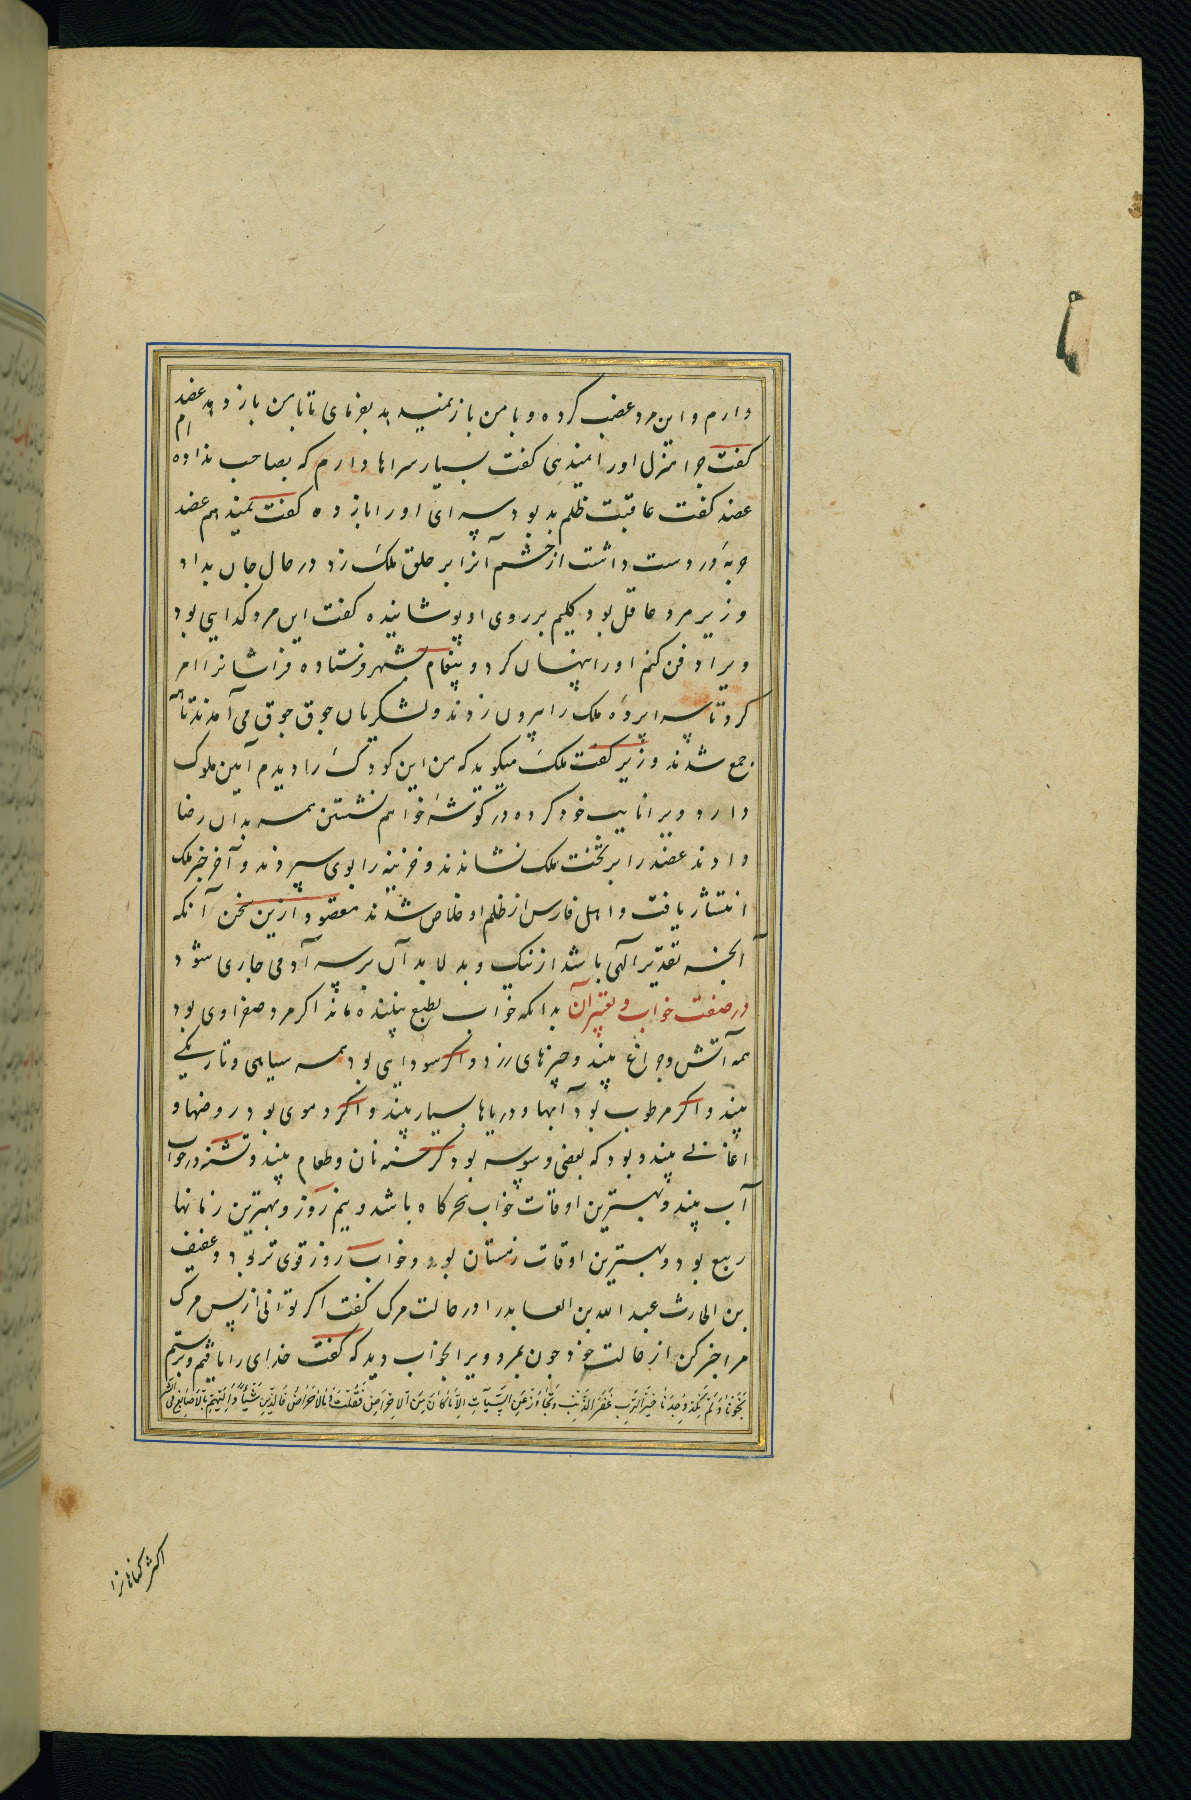 دارم و این مرد غضب کرده و با من باز نمیدهد بفرمای تا با من باز دهد عضد
ام
کفت چرا منزل او را نمیدهی کفت بسیار سراها دارم که بصاحب نداده
عضد کفت عاقبت ظلم بد بود سرای او را باز ده کفت نمیدهم عضد
حربه در دست داشت از خشم آنرا بر حلق ملک زد در حال جان بداد
وزیر مرد عاقل بود کلیم بر روی او پوشانیده کفت این مرد کدایی بود
ویرا دفن کنم او را پنهان کرد و پیغام بشهر فرستاده فراشانرا امر
کرد تا سراپرده ملک را بیرون زدند و لشکریان جوق جوق می آمدند تا
جمع شدند وزیر کفت ملک میکوید که من این کودک را دیدم آیین ملوک
دارد ویرا نایب خود کرده در کوشه خواهم نشستن همه بدان رضا
دادند عضد را بر تخت ملک نشاندند و خزینه را بوی سپردند و آخر خبر ملک
انتشار یافت و اهل فارس از ظلم او خلاص شدند مقصود ازین سخن آنکه
آنچه تقدیر آلهی باشد از نیک و بد لابد آن بر سر آدمی جاری شود
در صفت خواب و تعبیر آن بدانکه خواب بطبع بیننده ماند اکر مرد صفراوی بود
همه آتش و چراغ بیند و چیزهای زرد و اکر سودایی بود همه سیاهی و تاریکی
بیند و اکر مرطوب بود آبها و دریاها بسیار بیند و اکر دموی بود روضها و
اغانی بیند و بود که بعضی وسوسه بود کرسنه نان و طعام بیند و تشنه در خواب
آب بیند و بهترین اوقات خواب سحرکاه باشد و نیم روز و بهترین زمانها
ربیع بود و بهترین اوقات زمستان بود و خواب روز قوی تر بود و عفیف
بن الحارث عبد الله بن العابد را در حالت مرک کفت اکر توانی از پس مرک
مرا خبر کن از حالت خود چون بمرد ویرا بخواب دید که کفت خدای را یافتیم و برستیم
نجونا و لم نکد و وجدنا خیر الرب غفر الذنب و تجاوز عن السیآت الا ما کان من الاحراض فقلت و ما الاحراض قال الذین
اکثر کناهانرا